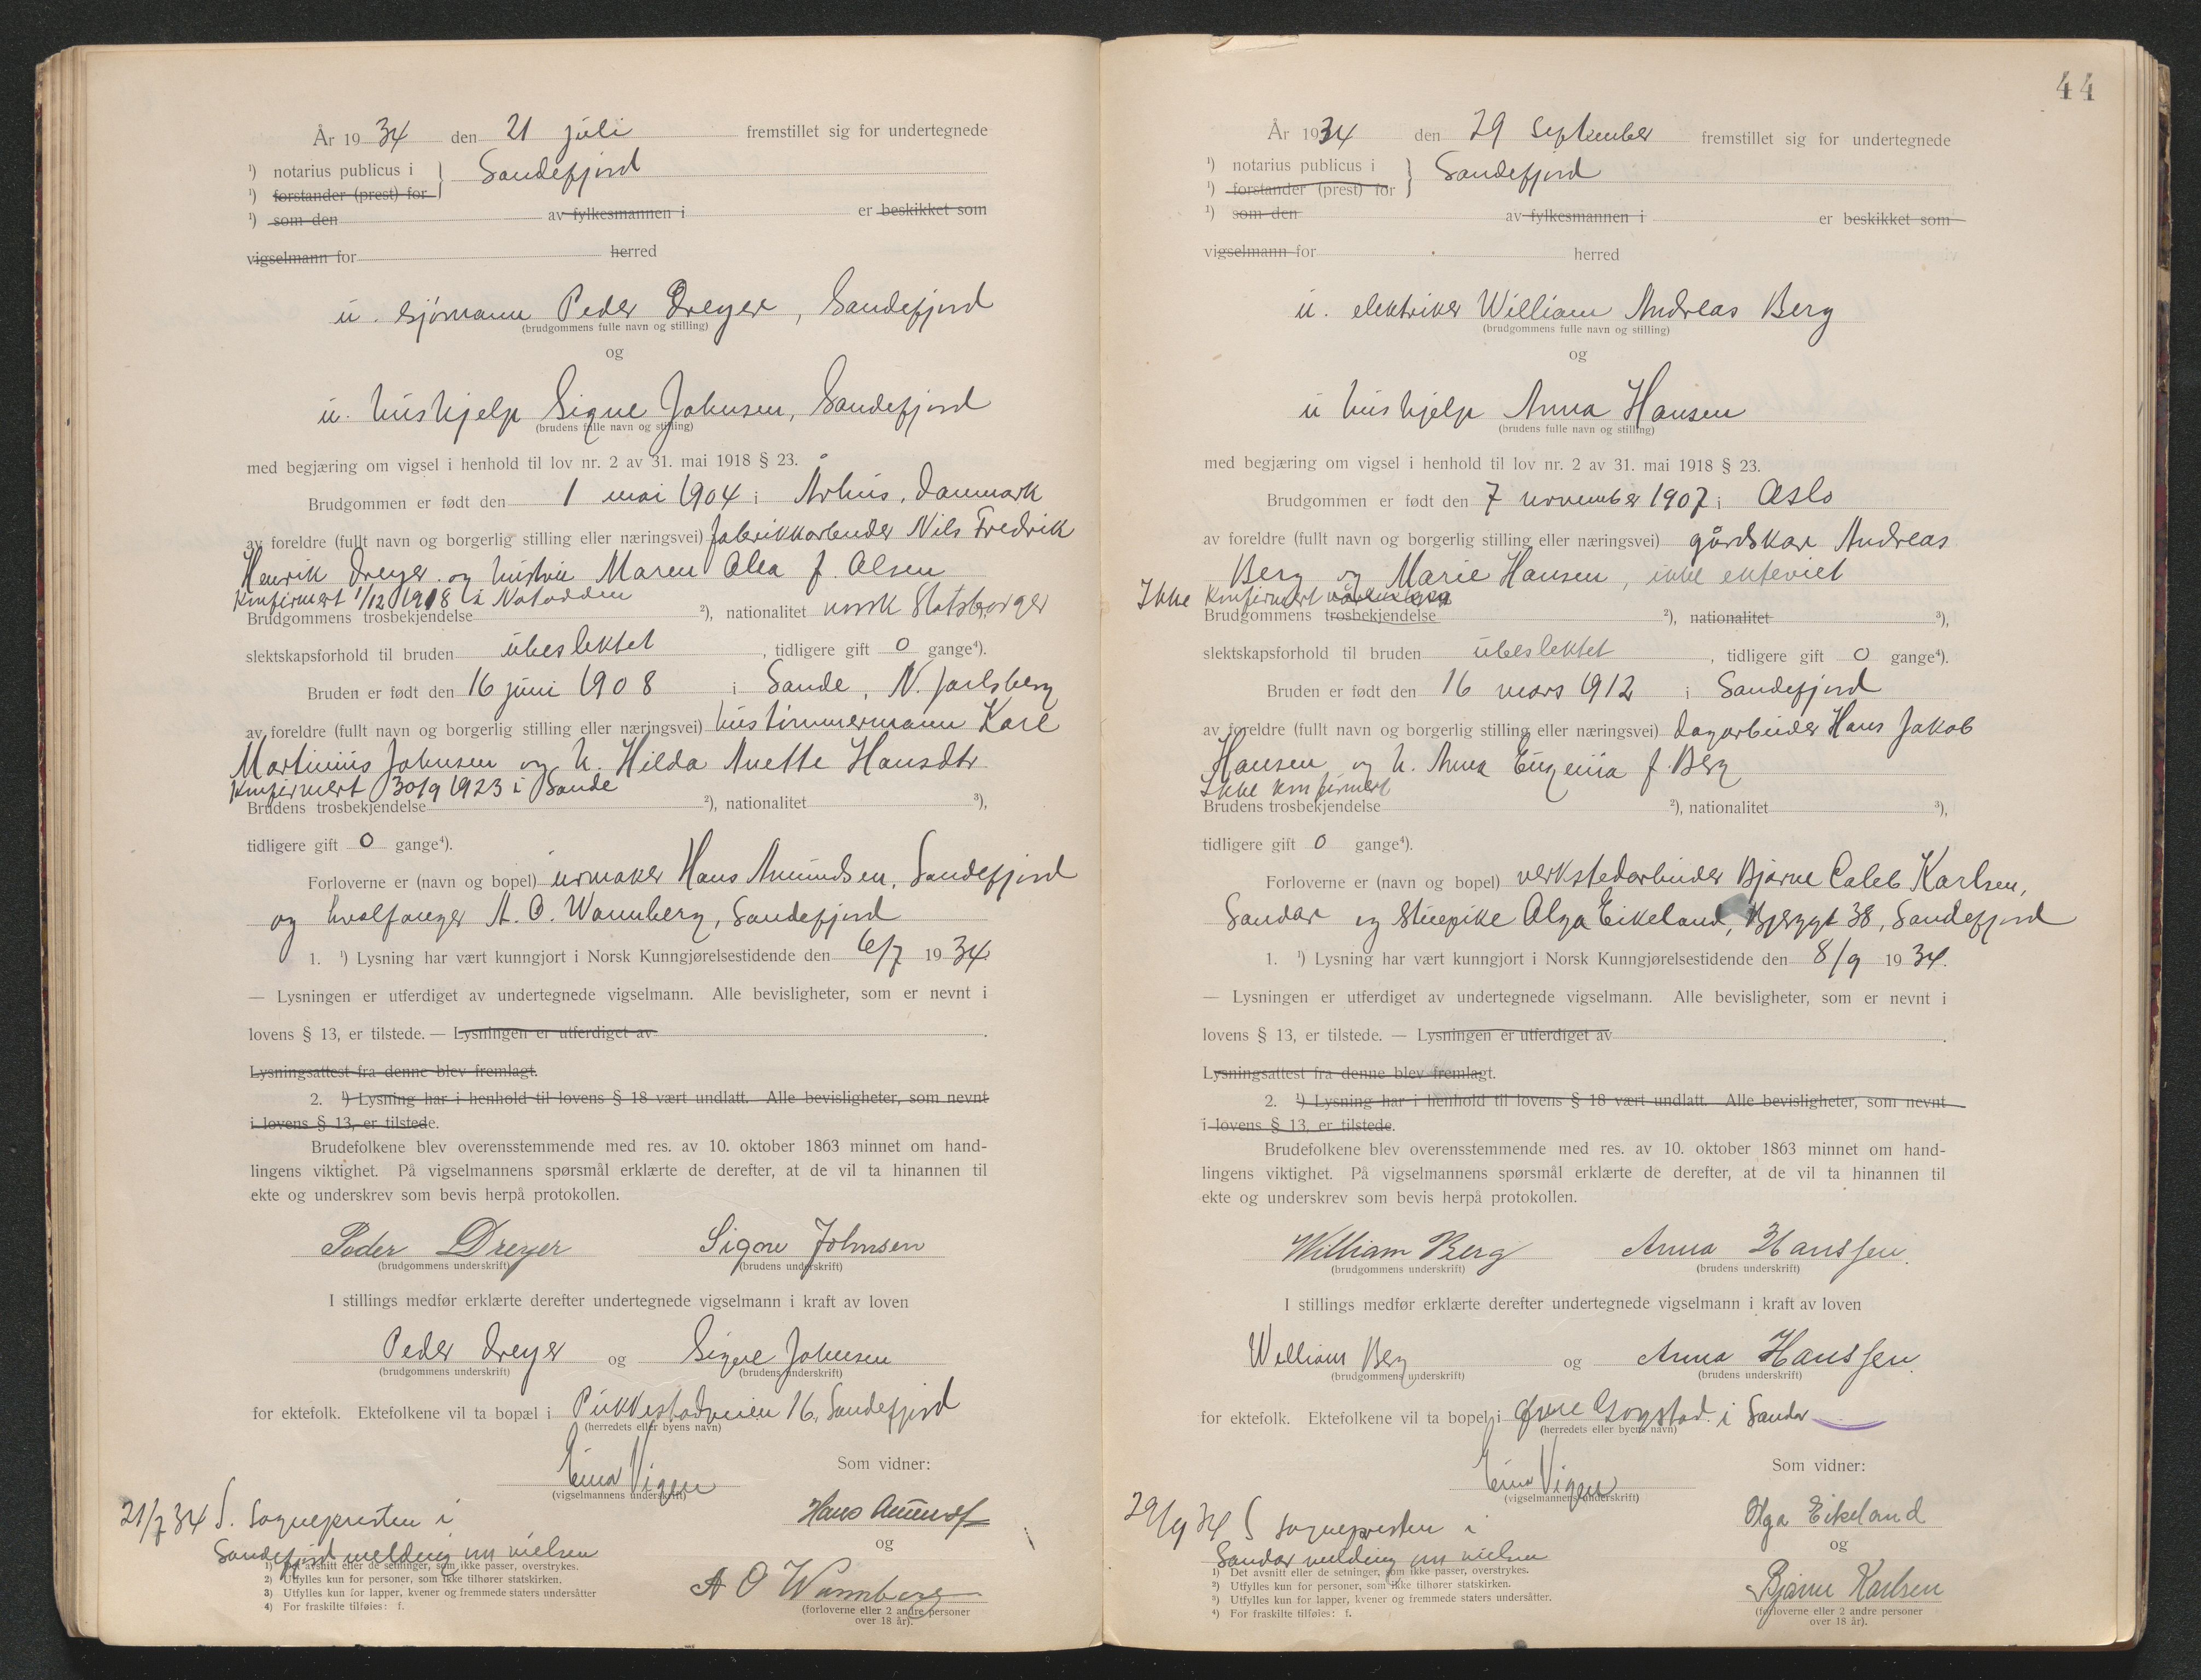 År 1934 den 21 juli fremstillet sig for undertegnede
¹) notarius publicus i } Sandefjord
¹) forstander (prest) for
¹) som den av fylkesmannen i er beskikket som
vigselmann for herred
u. sjömann Peder Dreyer, Sandefjord
(brudgommens fulle navn og stilling)
og
u. hushjelp Signe Johnsen, Sandefjord
(brudens fulle navn og stilling)
med begjæring om vigsel i henhold til lov nr. 2 av 31. mai 1918 § 23.
Brudgommen er født den 1 mai 1904 i Århus, Danmark
av foreldre (fullt navn og borgerlig stilling eller næringsvei) fabrikkarbeider Nils Fredrik
Henrik Dreyer og hustru Maren Olea f. Olsen
Konfirmert 1/12 1918 i Notodden
Brudgommens trosbekjendelse ²), nationalitet norsk statsborger
slektskapsforhold til bruden ubeslektet, tidligere gift 0 gange⁴).
Bruden er født den 16 juni 1908 i Sande, N. Jarlsberg
av foreldre (fullt navn og borgerlig stilling eller næringsvei) hustömmermann Karl
Martinius Johnsen og h. Hilda Anette Hansdtr
Konfirmert 30/9 1923 i Sande
Brudens trosbekjendelse ²), nationalitet ³),
tidligere gift 0 gange⁴).
Forloverne er (navn og bopel) urmaker Hans Amundsen, Sandefjord
og hvalfanger A. O. Wannberg, Sandefjord
1. ¹) Lysning har vært kunngjort i Norsk Kunngjørelsestidende den 6/7 1934
— Lysningen er utferdiget av undertegnede vigselmann. Alle bevisligheter, som er nevnt i
lovens § 13, er tilstede. — Lysningen er utferdiget av .
Lysningsattest fra denne blev fremlagt.
2. ¹) Lysning har i henhold til lovens § 18 vært undlatt. Alle bevisligheter, som nevnt
i lovens § 13, er tilstede.
Brudefolkene blev overensstemmende med res. av 10. oktober 1863 minnet om hand-
lingens viktighet. På vigselmannens spørsmål erklærte de derefter, at de vil ta hinannen til
ekte og underskrev som bevis herpå protokollen.
Peder Dreyer Signe Johnsen
(brudgommens underskrift) (brudens underskrift)
I stillings medfør erklærte derefter undertegnede vigselmann i kraft av loven
Peder Dreyer og Signe Johnsen
(brudgommens underskrift) (brudens underskrift)
for ektefolk. Ektefolkene vil ta bopæl i Pukkestadveien 16, Sandefjord
(herredets eller byens navn)
Som vidner:
(vigselmannens underskrift)
21/7 34 S. Sognepresten i
Sandefjord melding om vielsen
Hans Amunds
og
A O Wannberg
(forloverne eller 2 andre personer
over 18 år).
1) Det avsnitt eller de setninger, som ikke passer, overstrykes.
2) Utfylles kun for personer, som ikke tilhører statskirken.
3) Utfylles kun for lapper, kvener og fremmede staters undersåtter
4) For fraskilte tilføies: f.
44
År 1934 den 29 september fremstillet sig for undertegnede
¹) notarius publicus i } Sandefjord
¹) forstander (prest) for
¹) som den av fylkesmannen i er beskikket som
vigselmann for herred
u. elektriker William Andreas Berg
(brudgommens fulle navn og stilling)
og
u hushjelp Anna Hansen
(brudens fulle navn og stilling)
med begjæring om vigsel i henhold til lov nr. 2 av 31. mai 1918 § 23.
Brudgommen er født den 7 november 1907 i Oslo
av foreldre (fullt navn og borgerlig stilling eller næringsvei) gårdskar Andreas
Berg og Marie Hansen, ikke ekteviet
Ikke Konfirmert
Brudgommens trosbekjendelse ²), nationalitet ³),
slektskapsforhold til bruden ubeslektet, tidligere gift 0 gange⁴).
Bruden er født den 16 mars 1912 i Sandefjord
av foreldre (fullt navn og borgerlig stilling eller næringsvei) dagarbeider Hans Jakob
Hansen og h. Anna Eugenia f. Berg
Ikke konfirmert
Brudens trosbekjendelse ²), nationalitet ³),
tidligere gift 0 gange⁴).
Forloverne er (navn og bopel) verkstedarbeider Bjarne Caleb Karlsen,
Sandar og stuepike Olga Eikeland, Bjerggt 38, Sandefjord
1. ¹) Lysning har vært kunngjort i Norsk Kunngjørelsestidende den 8/9 1934.
— Lysningen er utferdiget av undertegnede vigselmann. Alle bevisligheter, som er nevnt i
lovens § 13, er tilstede. — Lysningen er utferdiget av .
Lysningsattest fra denne blev fremlagt.
2. ¹) Lysning har i henhold til lovens § 18 vært undlatt. Alle bevisligheter, som nevnt
i lovens § 13, er tilstede.
Brudefolkene blev overensstemmende med res. av 10. oktober 1863 minnet om hand-
lingens viktighet. På vigselmannens spørsmål erklærte de derefter, at de vil ta hinannen til
ekte og underskrev som bevis herpå protokollen.
William Berg Anna Hanssen.
(brudgommens underskrift) (brudens underskrift)
I stillings medfør erklærte derefter undertegnede vigselmann i kraft av loven
William Berg og Anna Hanssen.
(brudgommens underskrift) (brudens underskrift)
for ektefolk. Ektefolkene vil ta bopel i Øvre Gogstad i Sandar
(herredets eller byens navn)
Som vidner:
(vigselmannens underskrift)
29/9 34 S sognepresten i
Sandar melding om vielsen
Olga Eikeland
og
Bjarne Karlsen
(forloverne eller 2 andre personer
over 18 år).
1) Det avsnitt eller de setninger, som ikke passer, overstrykes.
²) Utfylles kun for personer, som ikke tilhører statskirken.
³) Utfylles kun for lapper, kvener og fremmede staters undersåtter.
⁴) For fraskilte tilføies: f.